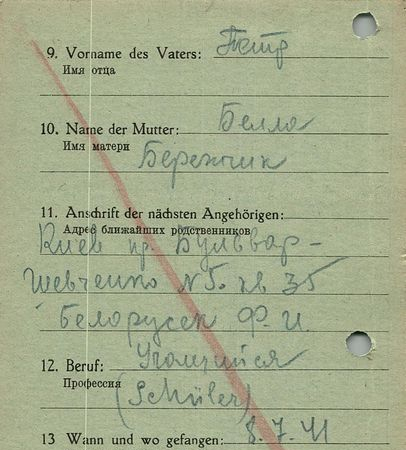 9. Vorname des Vaters: Петр
Имя отца
10. Name der Mutter: Белла
Имя матери Бережник
11. Anschrift der nächsten Angehörigen:
Адрес ближайших родственников
Киев пр. Бульвар-
Шевченко N 5. кв 35
Белорусек Ф. И.
12. Beruf: Учащийся
Профессия (Schüler)
13 Wann und wo gefangen: 8. 7. 41